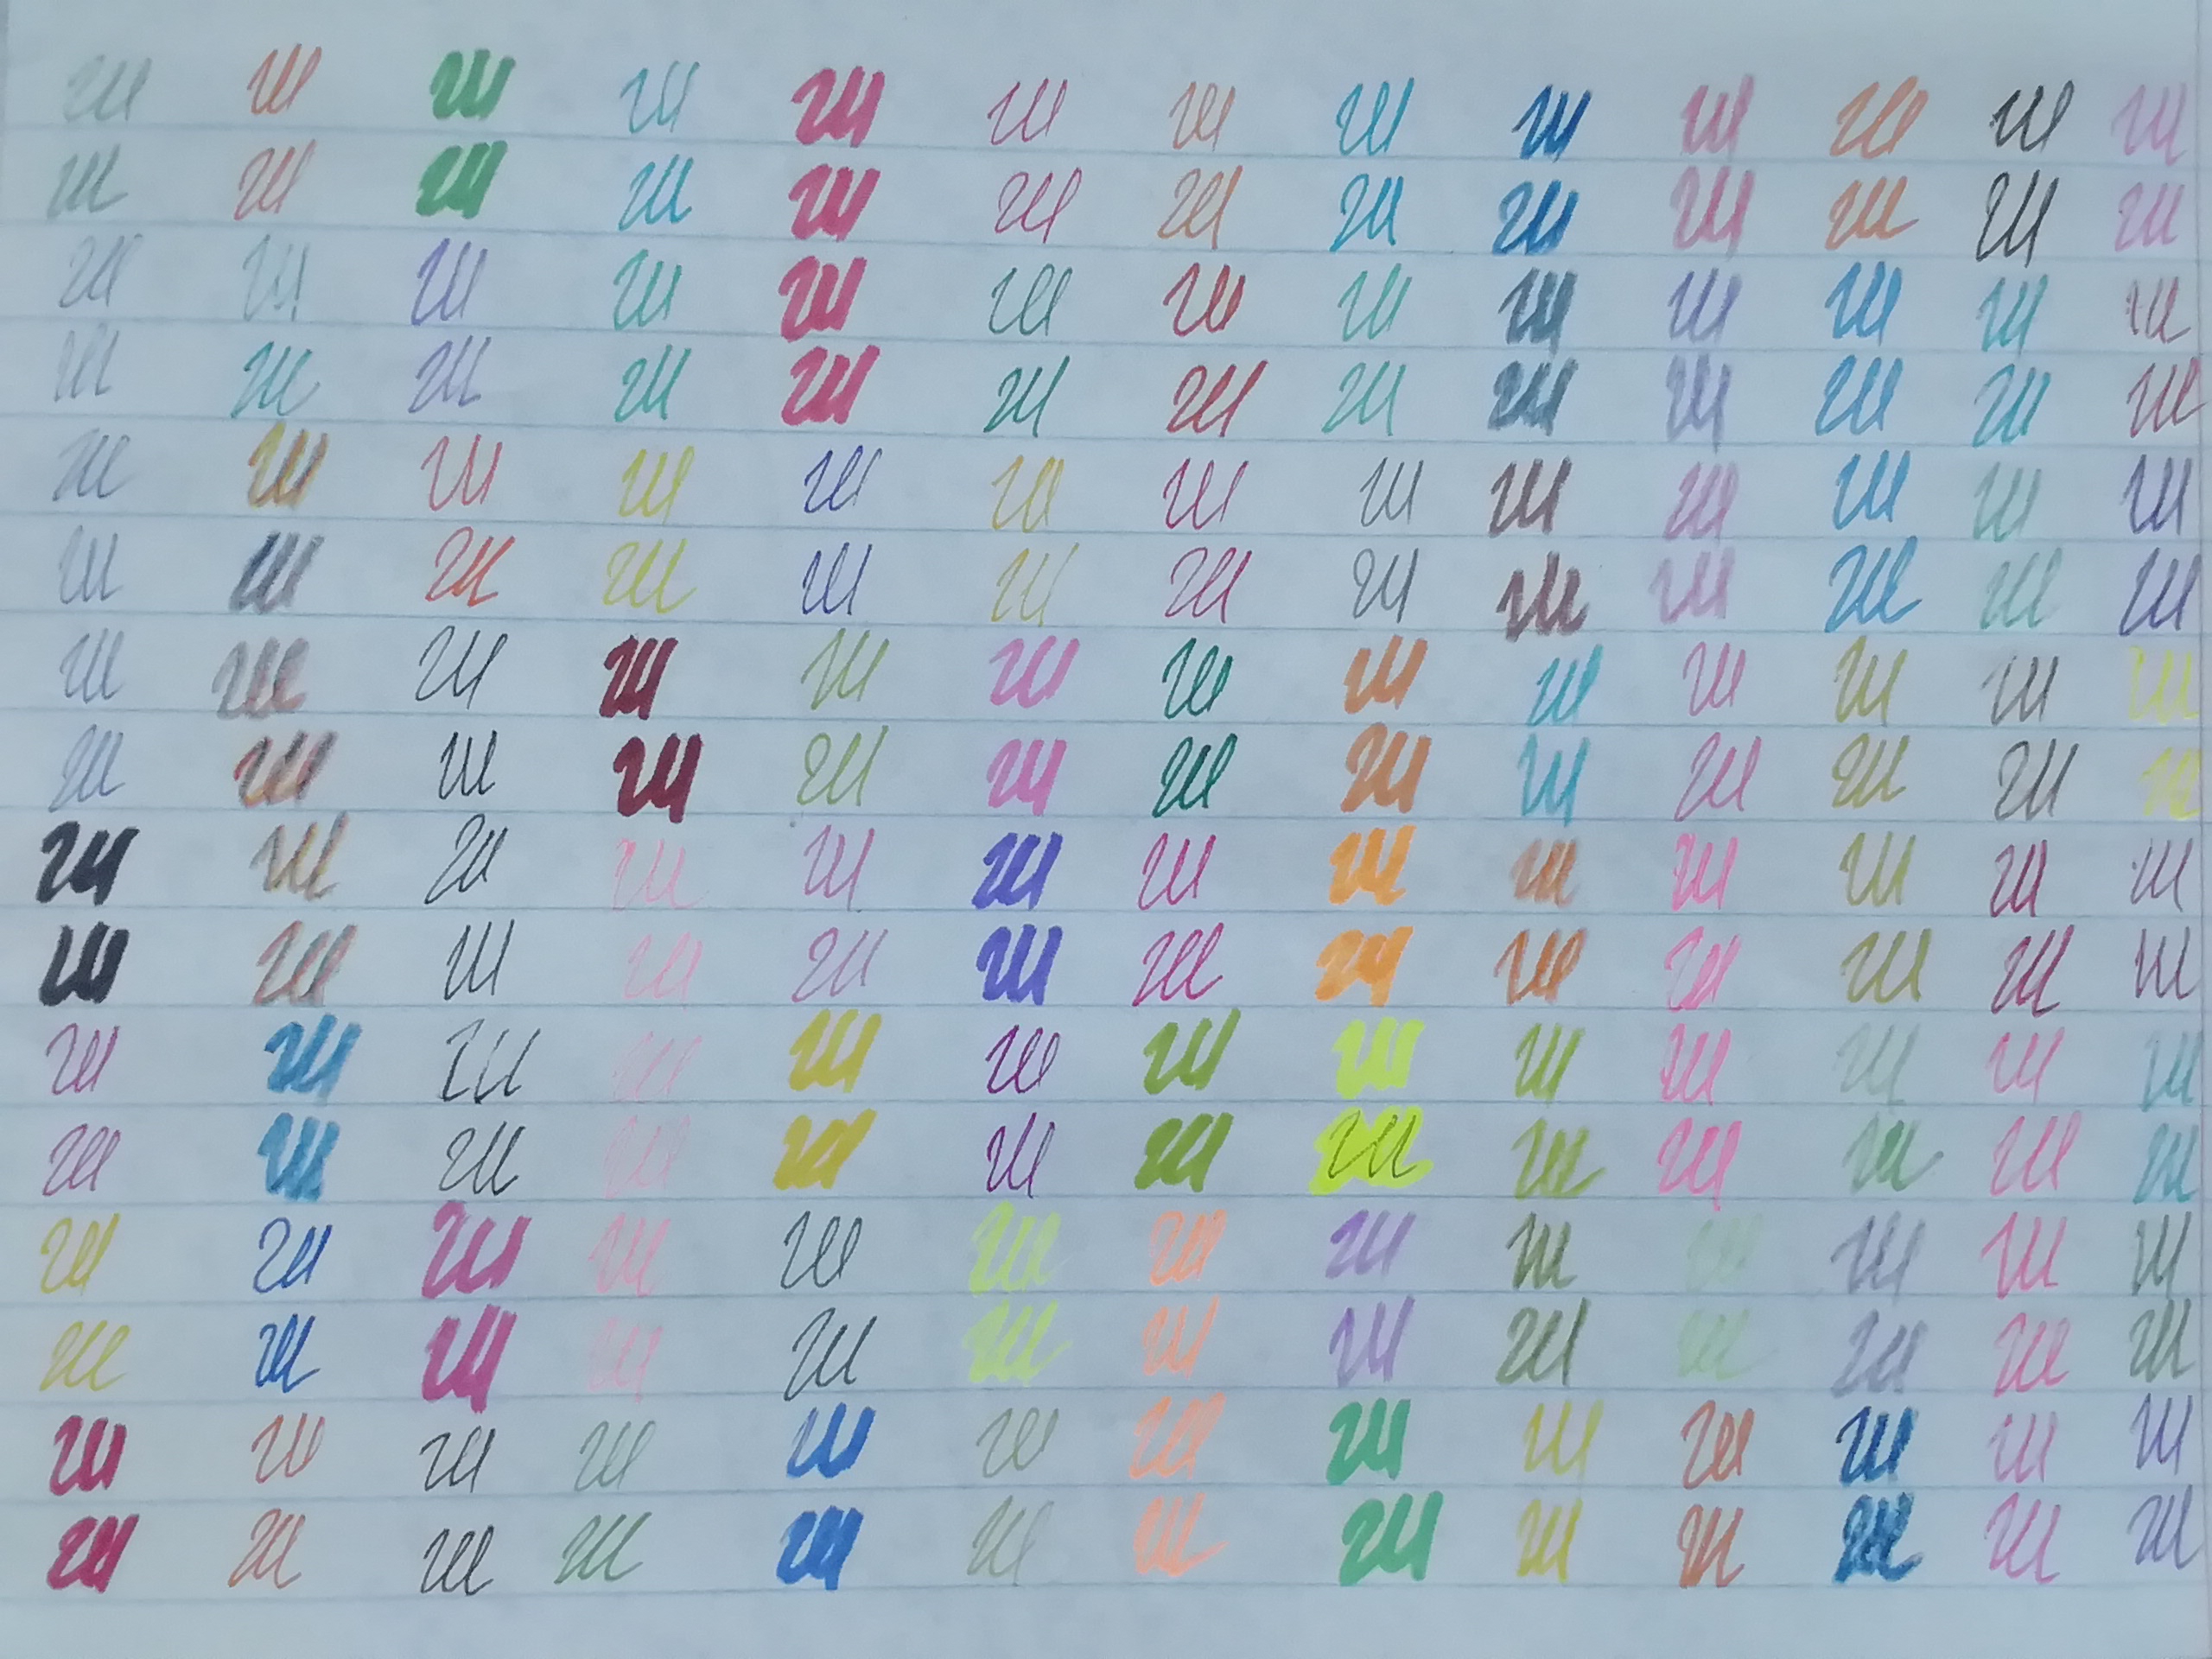 Ш Ш Ш Ш Ш Ш Ш Ш Ш Ш Ш Ш Ш
Ш Ш Ш Ш Ш Ш Ш Ш Ш Ш Ш Ш Ш
Ш Ш Ш Ш Ш Ш Ш Ш Ш Ш Ш Ш Ш
Ш Ш Ш Ш Ш Ш Ш Ш Ш Ш Ш Ш Ш
Ш Ш Ш Ш Ш Ш Ш Ш Ш Ш Ш Ш Ш
Ш Ш Ш Ш Ш Ш Ш Ш Ш Ш Ш Ш Ш
Ш Ш Ш Ш Ш Ш Ш Ш Ш Ш Ш Ш Ш
Ш Ш Ш Ш Ш Ш Ш Ш Ш Ш Ш Ш Ш
Ш Ш Ш Ш Ш Ш Ш Ш Ш Ш Ш Ш Ш
Ш Ш Ш Ш Ш Ш Ш Ш Ш Ш Ш Ш Ш
Ш Ш Ш Ш Ш Ш Ш Ш Ш Ш Ш Ш Ш
Ш Ш Ш Ш Ш Ш Ш Ш Ш Ш Ш Ш Ш
Ш Ш Ш Ш Ш Ш Ш Ш Ш Ш Ш Ш Ш
Ш Ш Ш Ш Ш Ш Ш Ш Ш Ш Ш Ш Ш
Ш Ш Ш Ш Ш Ш Ш Ш Ш Ш Ш Ш Ш
Ш Ш Ш Ш Ш Ш Ш Ш Ш Ш Ш Ш Ш